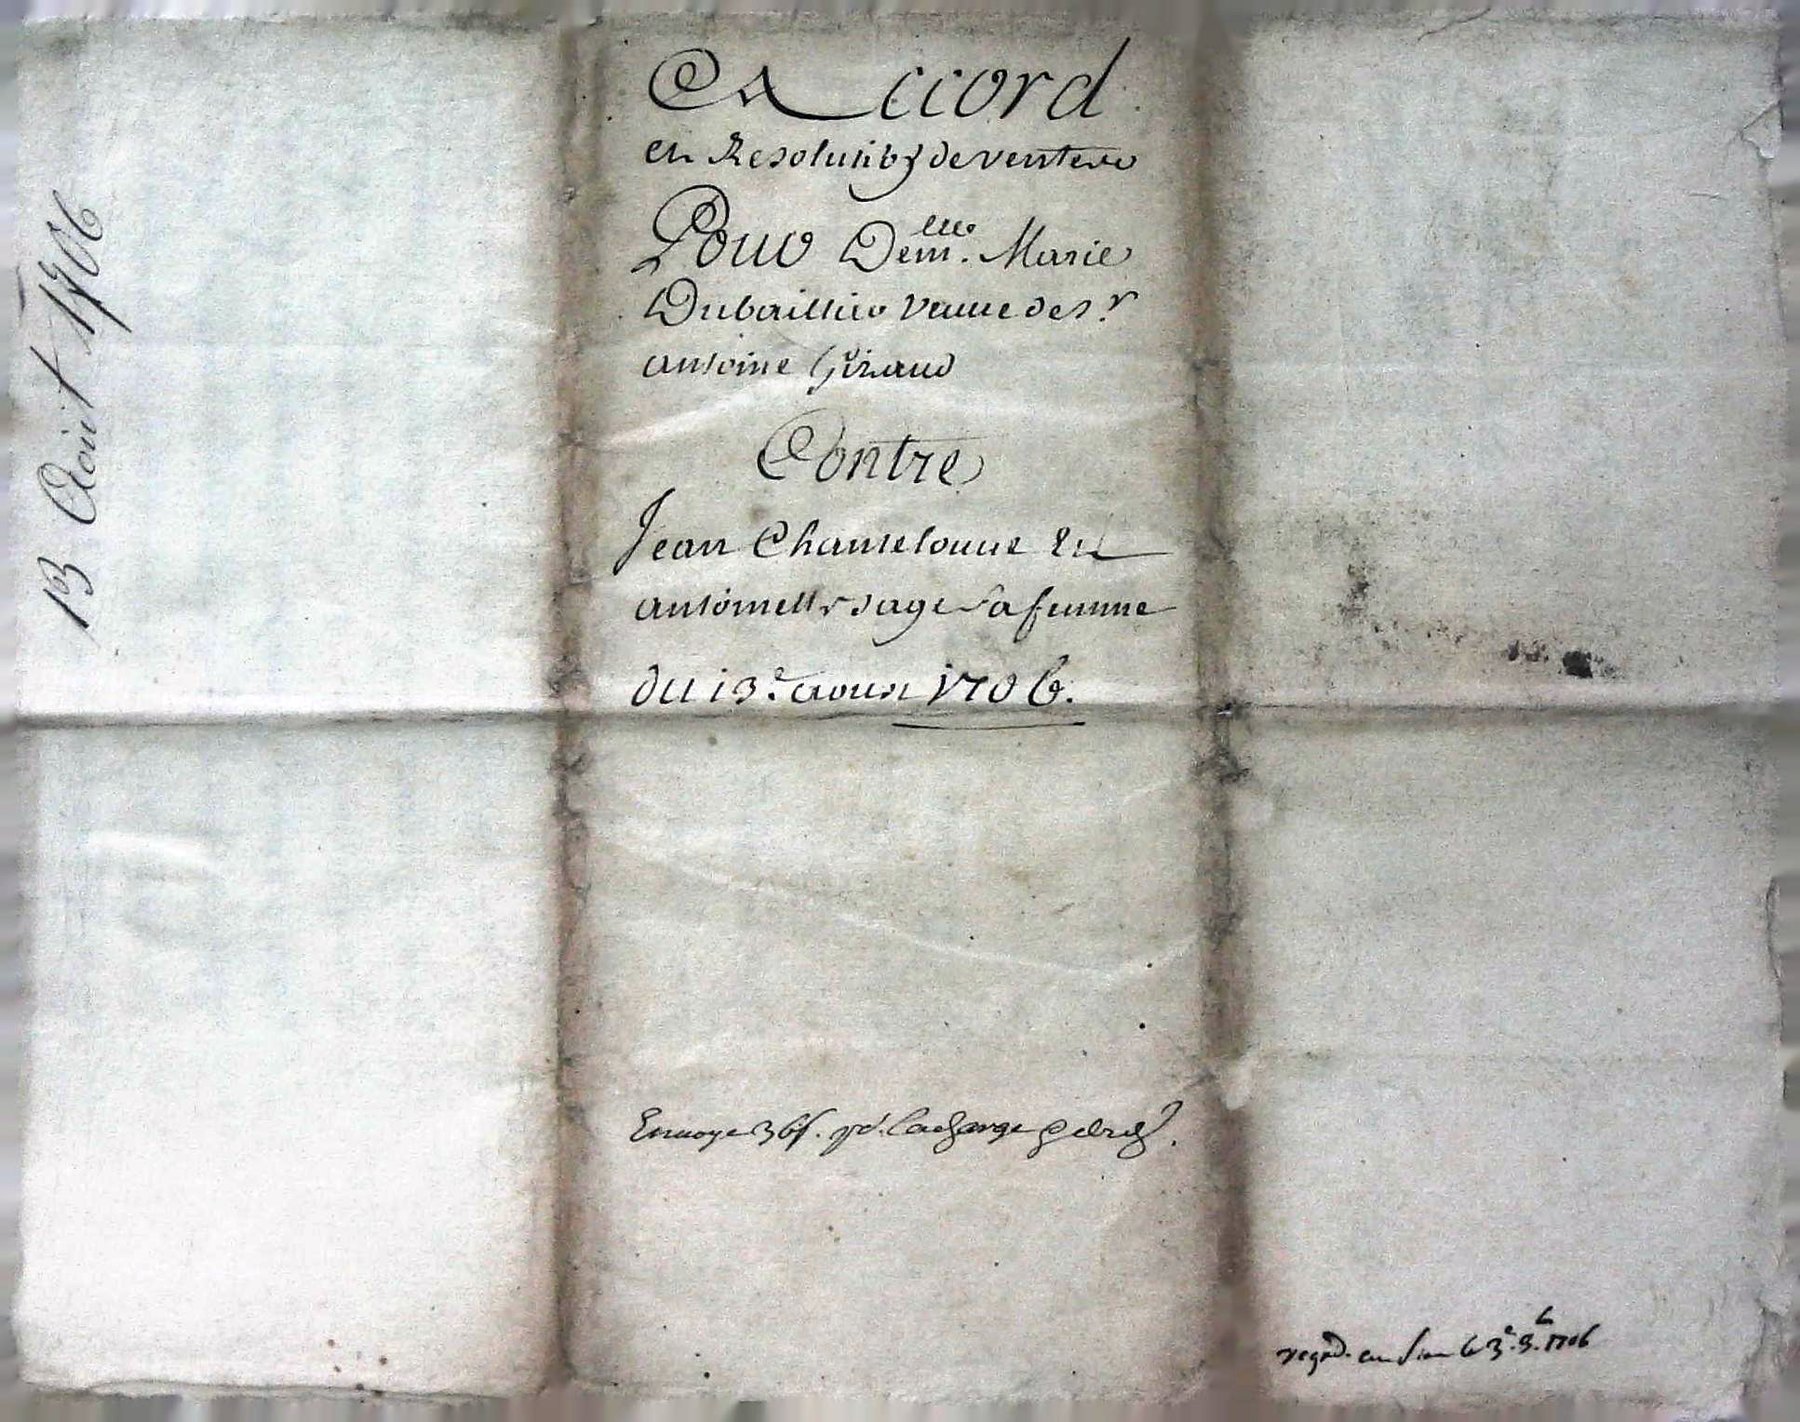 13 Aoiut 1706
Accord
et Resolution de vente
Pour Dem.lle Marie
Dubaillier veuue de s.r
antoine Giraud
Contre
Jean Chanteloune Et
antoinette sage sa femme
du 13.e aoust 1706.
Enuoye 36
le 3.e 1706